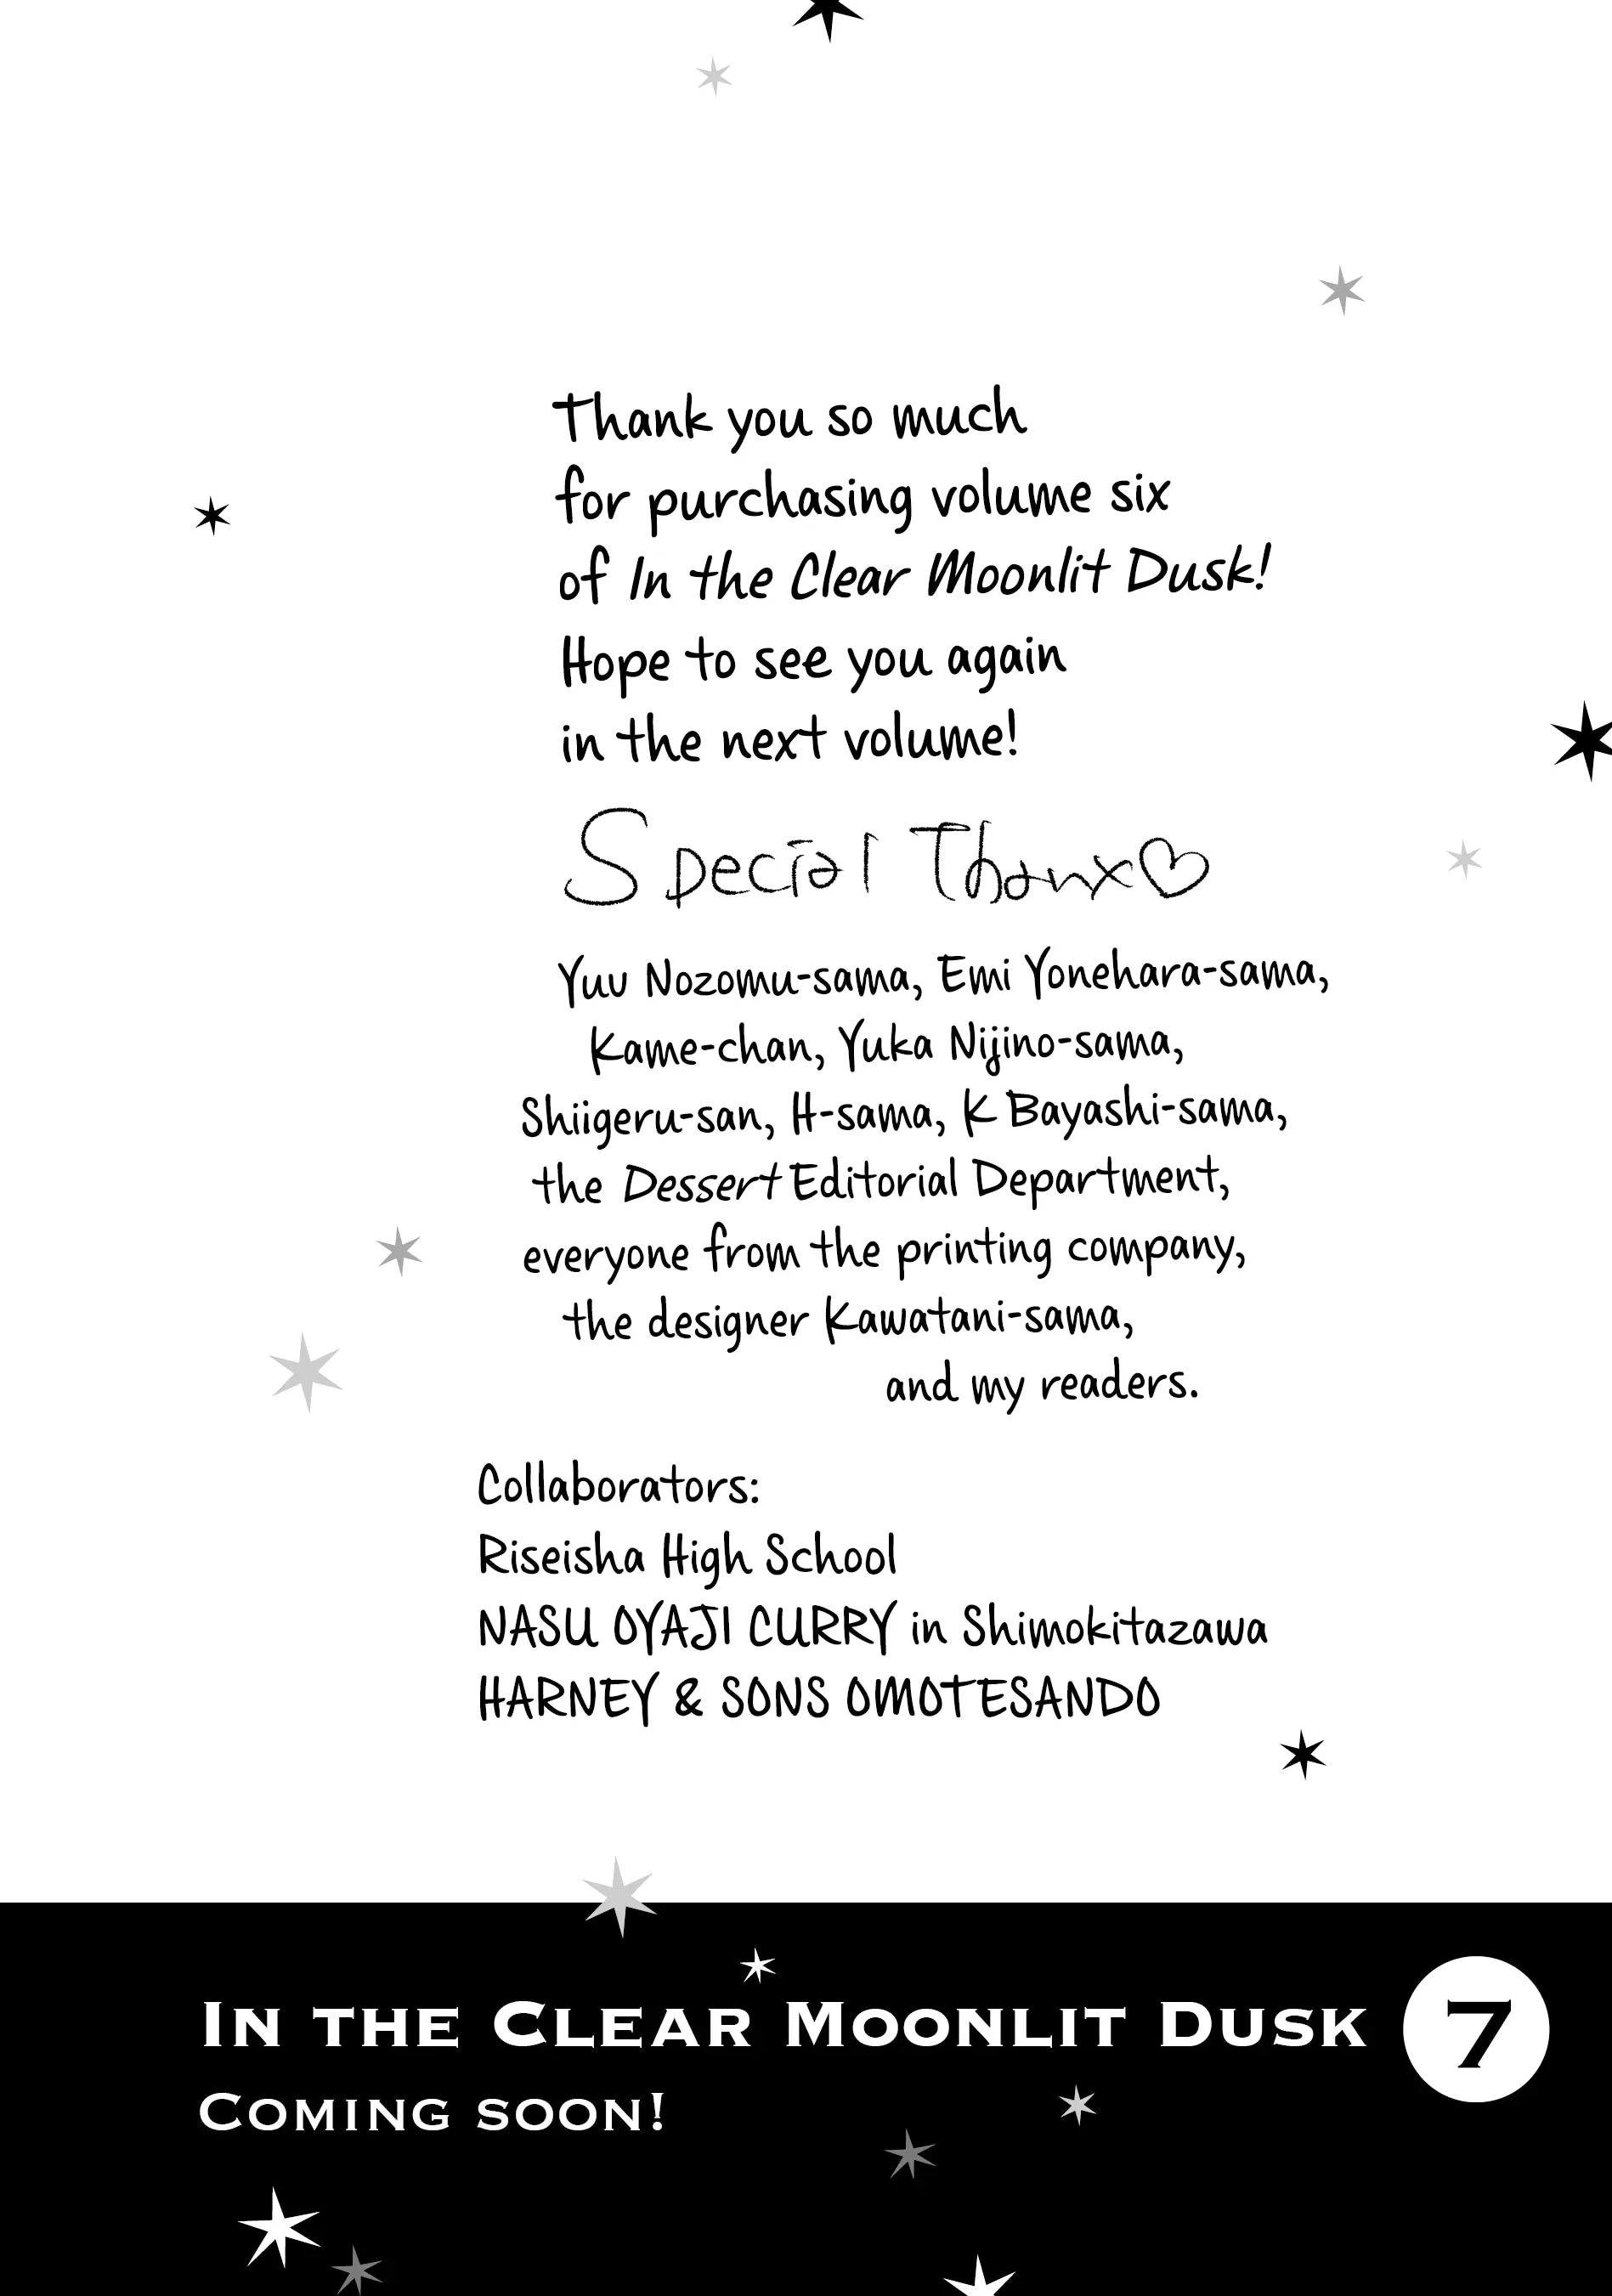 Thank you so much
for purchasing volume six
of In the Clear Moonlit Dusk!
Hope to see you again
in the next volume!
Special Thanx♡
Yuu Nozomu-sama, Emi Yonehara-sama,
Kame-chan, Yuka Nijino-sama,
Shiigeru-san, H-sama, K Bayashi-sama,
the Dessert Editorial Department,
everyone from the printing company,
the designer Kawatani-sama,
and my readers.
Collaborators:
Riseisha High School
NASU OYAJI CURRY in Shimokitazawa
HARNEY & SONS OMOTESANDO
In the Clear Moonlit Dusk 7
Coming soon!